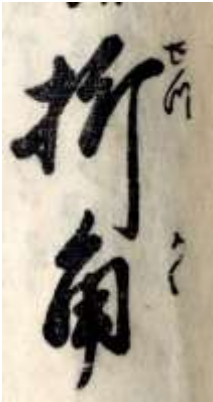 折角
せつかく